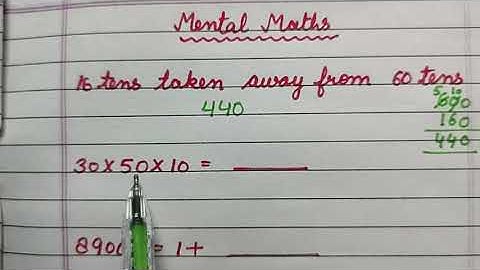 Mental Maths
16 tens taken away from 60 tens
440
5 10
600
160
440
30 x 50 x 10 =
890 = 1 +